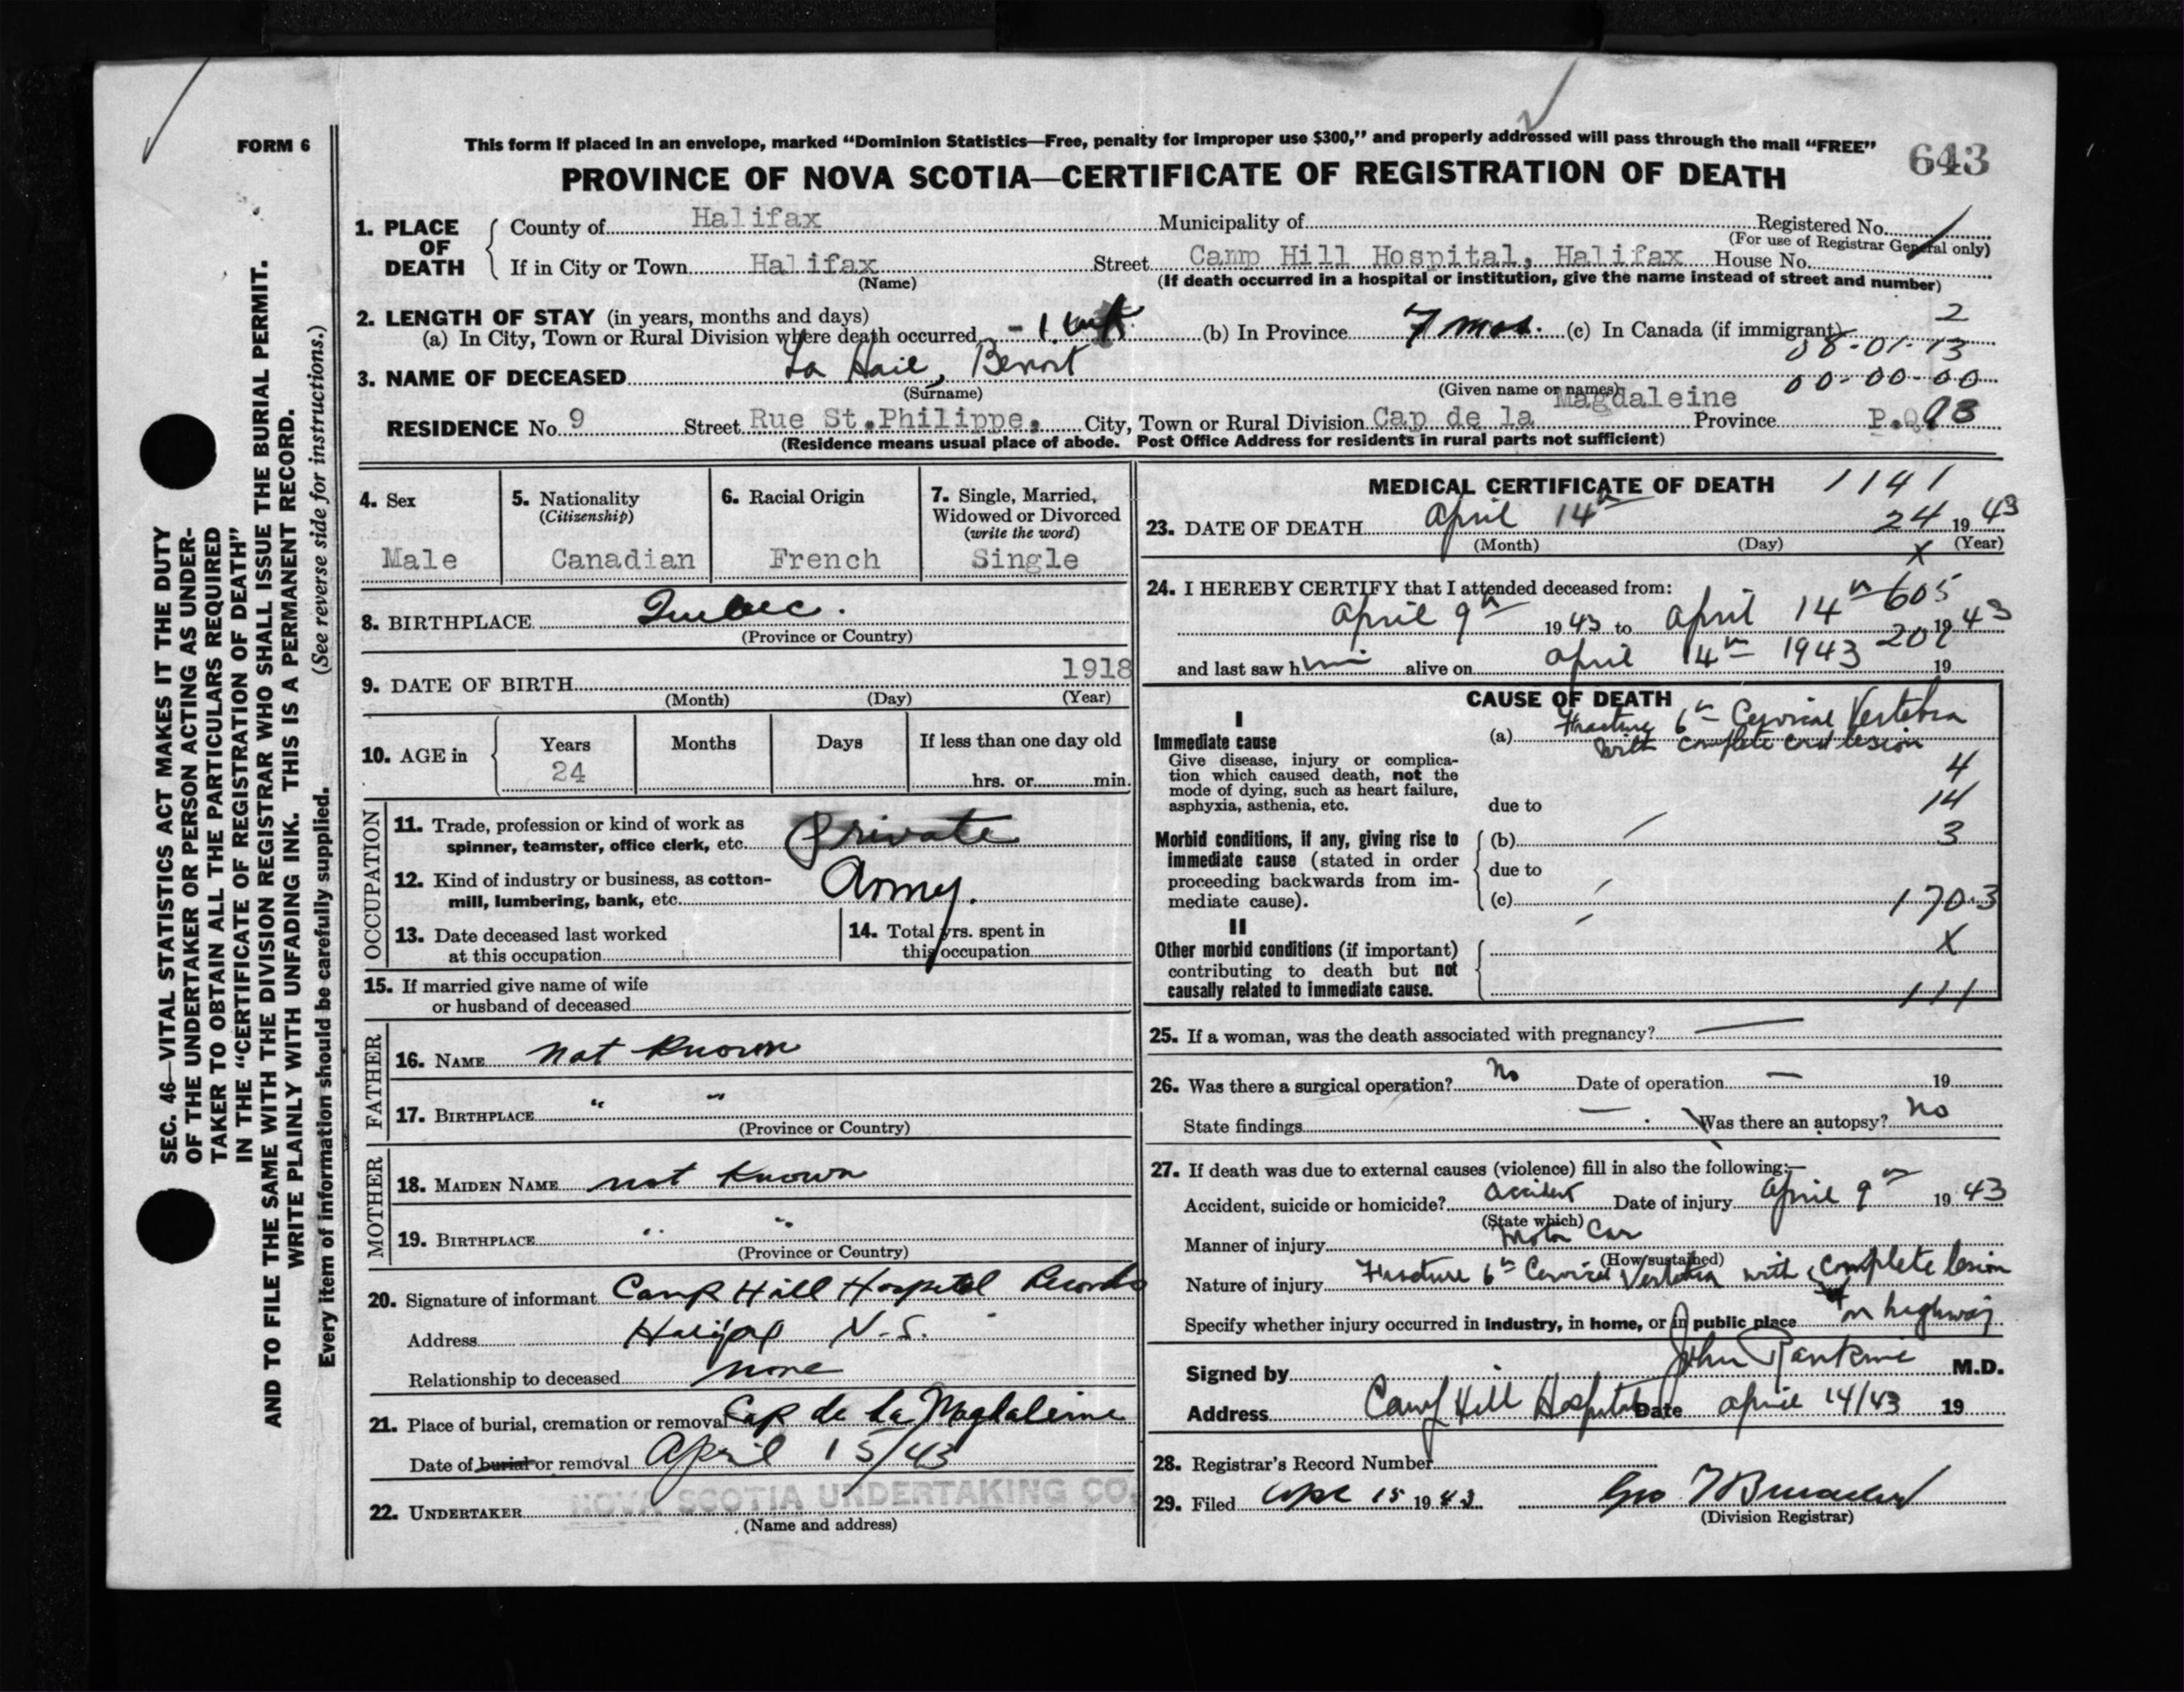 FORM 6
This form if placed in an envelope, marked "Dominion Statistics—Free, penalty for improper use $300," and properly addressed will pass through the mail "FREE"
643
PROVINCE OF NOVA SCOTIA—CERTIFICATE OF REGISTRATION OF DEATH
1. PLACE OF DEATH
County of Halifax Municipality of Registered No.
(For use of Registrar General only)
If in City or Town Halifax Street Camp Hill Hospital, Halifax House No.
(Name) (If death occurred in a hospital or institution, give the name instead of street and number)
2. LENGTH OF STAY (in years, months and days) 2
(a) In City, Town or Rural Division where death occurred - 1 (b) In Province 7 mos. (c) In Canada (if immigrant)
08-01-13
3. NAME OF DECEASED La Haie, Benoit
00-00-00
(Surname) (Given name or names)
RESIDENCE No. 9 Street Rue St.Philippe, City, Town or Rural Division Cap de la Magdaleine Province P.Q. 93
(Residence means usual place of abode. Post Office Address for residents in rural parts not sufficient)
4. Sex
Male
5. Nationality
(Citizenship)
Canadian
6. Racial Origin
French
7. Single, Married,
Widowed or Divorced
(write the word)
Single
8. BIRTHPLACE Quebec.
(Province or Country)
9. DATE OF BIRTH 1918
(Month) (Day) (Year)
10. AGE in
Years Months Days If less than one day old
24 hrs. or min.
OCCUPATION
11. Trade, profession or kind of work as
spinner, teamster, office clerk, etc. Private
12. Kind of industry or business, as cotton-
mill, lumbering, bank, etc. Army.
13. Date deceased last worked
at this occupation
14. Total yrs. spent in
this occupation
15. If married give name of wife
or husband of deceased
FATHER
16. NAME not known
17. BIRTHPLACE " "
(Province or Country)
MOTHER
18. MAIDEN NAME not known
19. BIRTHPLACE " "
(Province or Country)
20. Signature of informant Camp Hill Hospital Records
Address Halifax N.S.
Relationship to deceased none
21. Place of burial, cremation or removal Cap de la Magdaleine
Date of burial or removal April 15/43
22. UNDERTAKER NOVA SCOTIA UNDERTAKING CO.
(Name and address)
MEDICAL CERTIFICATE OF DEATH 1141
23. DATE OF DEATH April 14th 24 1943
(Month) (Day) (Year)
X
24. I HEREBY CERTIFY that I attended deceased from:
605
April 9th 1943 to April 14th 1943
202
and last saw him alive on April 14th 1943 19
CAUSE OF DEATH
I
Immediate cause
Give disease, injury or complica-
tion which caused death, not the
mode of dying, such as heart failure,
asphyxia, asthenia, etc.
(a) Fracture 6th Cervical Vertebra
with complete cord lesion
4
due to 14
Morbid conditions, if any, giving rise to
immediate cause (stated in order
proceeding backwards from im-
mediate cause).
(b) 3
due to
(c) 170.3
II
Other morbid conditions (if important)
contributing to death but not
causally related to immediate cause.
X
111
25. If a woman, was the death associated with pregnancy? —
26. Was there a surgical operation? No Date of operation — 19
State findings — Was there an autopsy? No
27. If death was due to external causes (violence) fill in also the following:—
Accident, suicide or homicide? accident Date of injury April 9th 1943
(State which)
Manner of injury Motor Car
(How sustained)
Nature of injury Fracture 6th Cervical Vertebra with complete lesion
Specify whether injury occurred in industry, in home, or in public place on highway
Signed by John Rankine M.D.
Address Camp Hill Hospital Date April 14/43 19
28. Registrar's Record Number
29. Filed Apl 15 1943 Geo
(Division Registrar)
SEC. 46—VITAL STATISTICS ACT MAKES IT THE DUTY
OF THE UNDERTAKER OR PERSON ACTING AS UNDER-
TAKER TO OBTAIN ALL THE PARTICULARS REQUIRED
IN THE "CERTIFICATE OF REGISTRATION OF DEATH"
AND TO FILE THE SAME WITH THE DIVISION REGISTRAR WHO SHALL ISSUE THE BURIAL PERMIT.
WRITE PLAINLY WITH UNFADING INK. THIS IS A PERMANENT RECORD.
Every item of information should be carefully supplied. (See reverse side for instructions.)